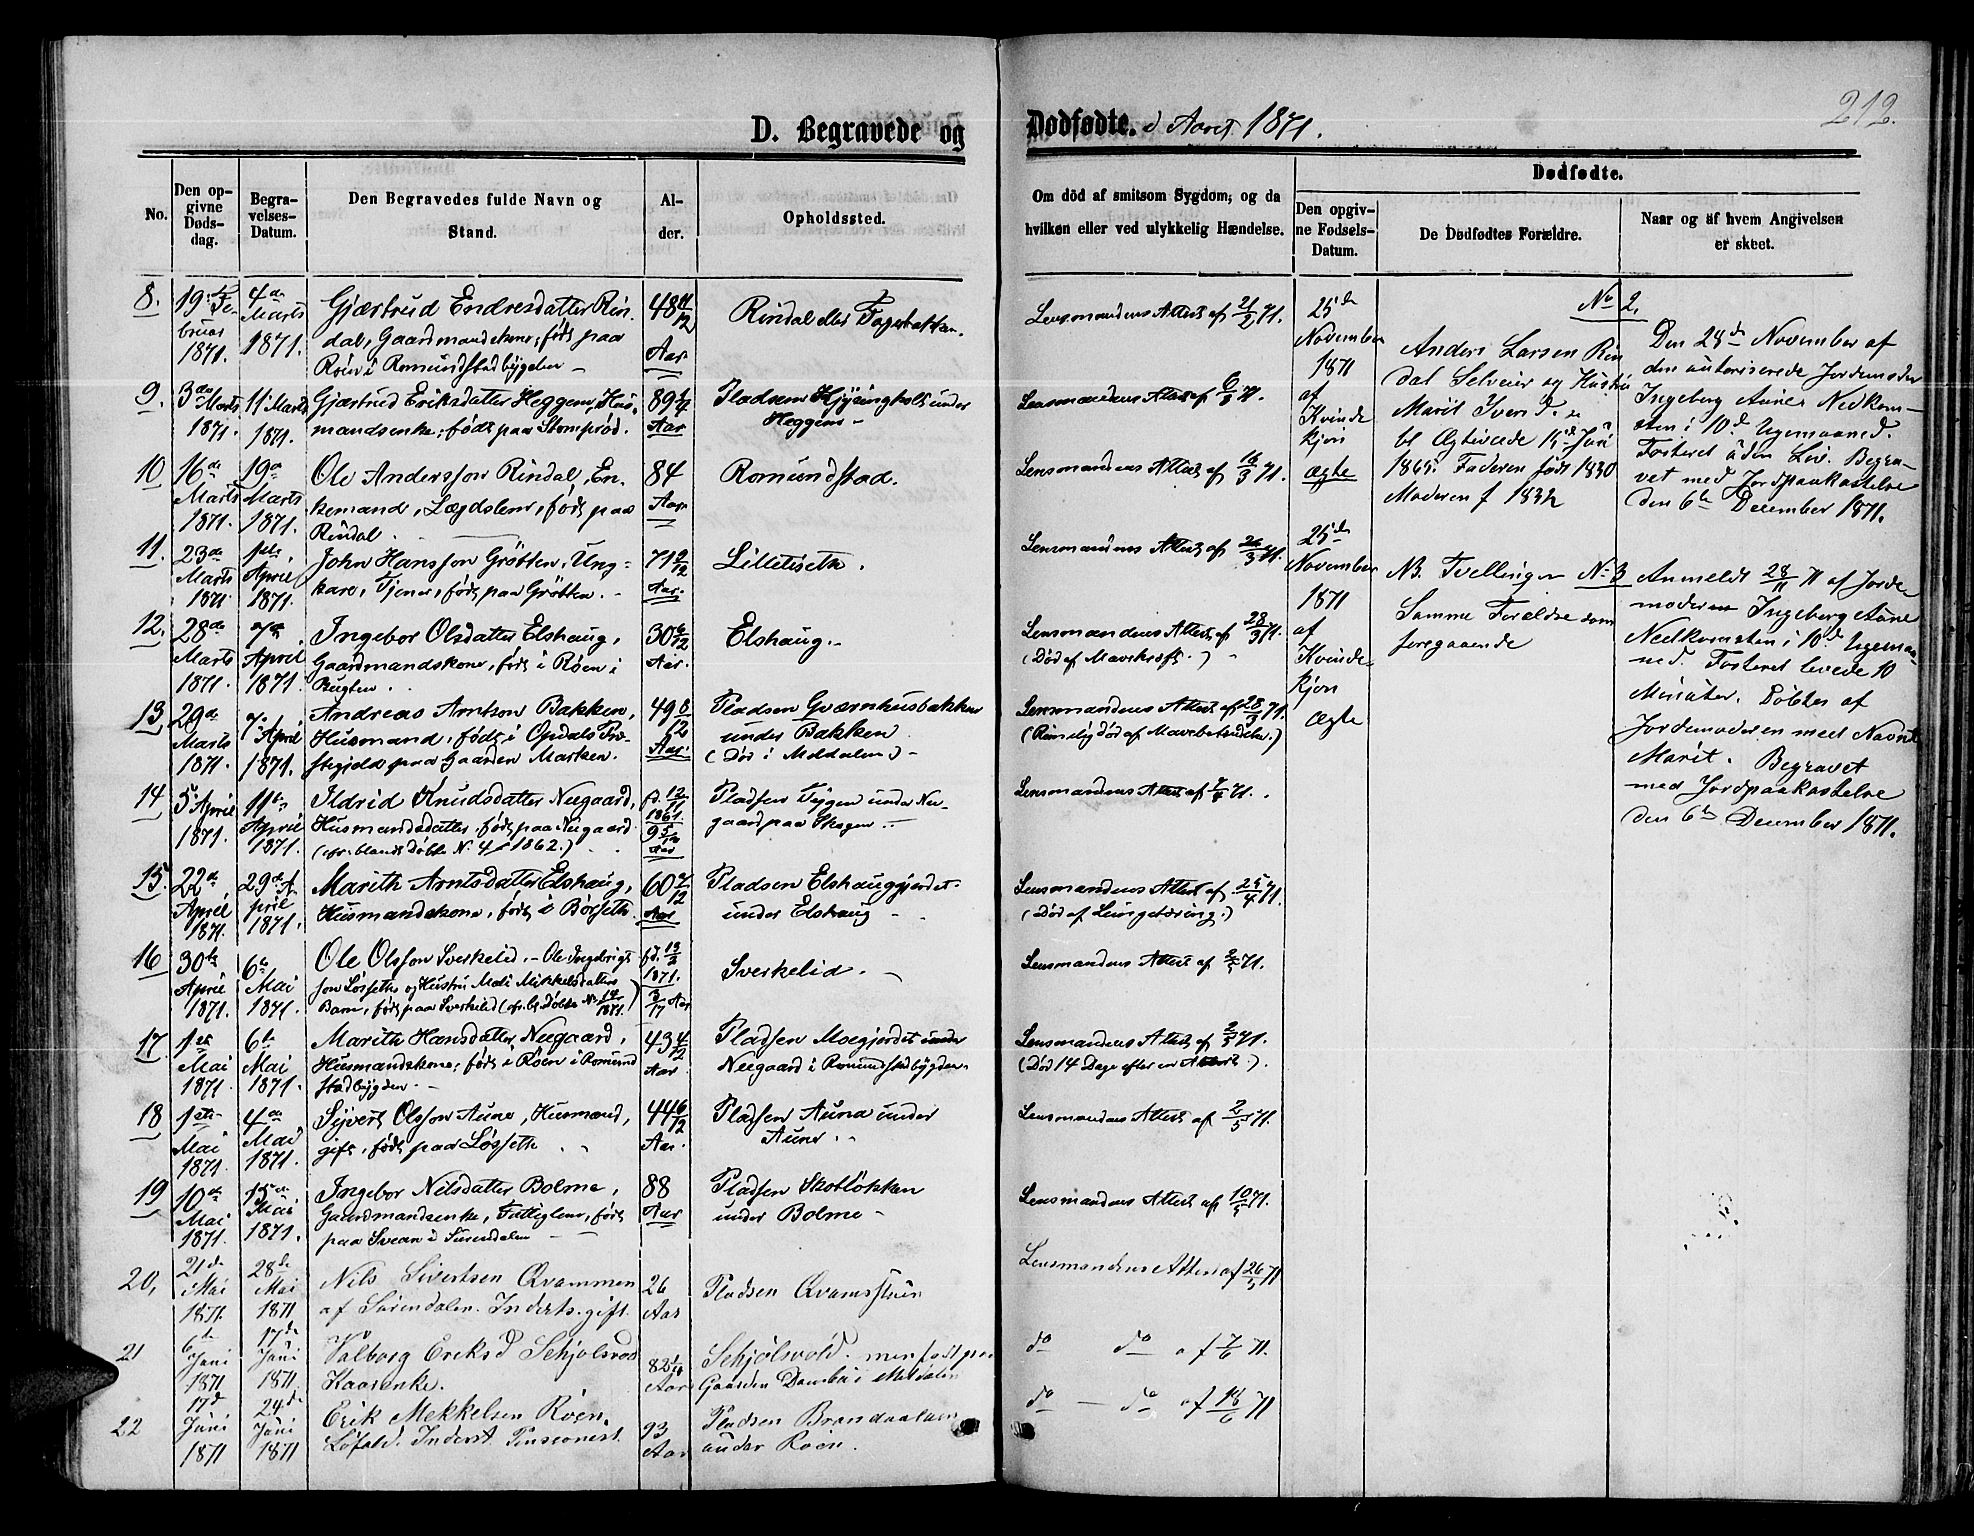 212.
D. Begravede og Dødfødte. i Aaret 1871.
No.
Den opgivne Dødsdag.
Begravelses-Datum.
Den Begravedes fulde Navn og Stand.
Alder.
Opholdssted.
Om död af smitsom Sygdom, og da hvilken eller ved ulykkelig Hændelse.
Dødfødte.
Den opgivne Fødsels-Datum.
De Dødfødtes Forældre.
Naar og af hvem Angivelsen er skeet.
8.
19de Februar 1871.
4de Marts 1871.
Gjærtrud Endresdatter Rindal, Gaardmandskone, født paa
Røen i Romundstadbygden
48 11/12 Aar
Rindal eller
Lensmandens Attest af 21/2 71.
9.
3de Marts 1871.
11te Marts 1871.
Gjærtrud Eriksdatter Heggem, Husmandsenke, født paa Stomprød.
Aar
Pladsen under
Heggem
Lensmandens Attest af 71.
10
16de Marts 1871.
19de Marts 1871.
Ole Andersson Rindal, Enkemand, Lægdslem, født paa
Rindal
84 Aar
Romundstad.
Lensmandens Attest af 16/3 71.
11.
23de Marts 1871
1ste April 1871.
John Hansson Grøtten, Ungkarl, Tjener, født paa Grøtten.
71 2/12 Aar.
Lilletiseth.
Lensmandens Attest af 71.
12.
28de Marts 1871
7de April 1871.
Ingebor Olsdatter Elshaug,
Gaardmandskone, født i Røen i
Bugten.
30 6/12 Aar.
Elshaug.
Lensmandens Attest af 28/3 71.
(Død af Mavekræft.)
13.
29de Marts 1871.
7de April 1871.
Andreas Arntson Bakken,
Husmand, født i Opdals Præstegjeld paa Gaarden Marken.
49 8/12 Aar.
Pladsen Qværnhusbakken
under Bakken
(Død i Meldalen)
Lensmandens Attest af 28/3 71.
14
5te April 1871.
11te April 1871.
Ildrid Knudsdatter Neegaard,
Husmandsdatter, født paa Neegaard
(opr. blandt Døbte N. 4 1862.)
fd. 12/11 1861.
9 5/12 Aar
Pladsen under Neegaard paa Skogen
Lensmandens Attest af 71.
15.
22de April 1871.
29de April 1871.
Marith Arntsdatter Elshaug,
Husmandskone, født i Børseth.
60 7/12 Aar
Pladsen Elshauggjerdet
under Elshaug
Lensmandens Attest af 25/4 71.
(Død af Lungetæring.)
16
30te April 1871.
6te Mai 1871.
Ole Olsson Sverkelid. Ole Ingebrigtsson Løsseth og Hustru Mali Mikkelsdatters
Barn, født paa Sverkelid
fd. 1871.
Aar
Sverkelid.
Lensmandens Attest af 2/5 71.
17.
1ste Mai 1871
6te Mai 1871.
Marith Hansdatter Neegaard,
Husmandskone, født i Røen i Romundstadbygden.
43 4/12 Aar
Pladsen Moegjerdet under
Neegaard i Romundstadbygden.
Lensmandens Attest af 2/5 71.
(Død 14 Dage efter en)
18
1ste Mai 1871.
4de Mai 1871.
Syvert Olsson Aune, Husmand,
gift, født paa Løsseth
44 6/12 Aar.
Pladsen Auna under
Aune.
Lensmandens Attest af 2/5 71.
19
10de Mai 1871.
15de Mai 1871.
Ingebor Nilsdatter Bolme,
Gaardmandsenke, Fattiglem, født
paa Svean i Surendalen
88 Aar
Pladsen Skotløkken
under Bolme
Lensmandens Attest af 10/5 71.
20.
21de Mai 1871
28de Mai 1871
Nils Sivertsen Qvammen
af Sürendalen. Inderst. gift.
26 Aar
Pladsen Qvamsstuen
Lensmandens Attest af 26/5 71
21
6te Juni 1871
17de Juni 1871
Valborg Eriks D Schjølsvold
Kaarenke.
Aar
Schjølsvold. men født paa
Gaarden i Meldalen
do do af 7/6 71.
22
17de Juni 1871
24de Juni 1871
Erik Mekkelsen Røen.
Løfald. Inderst. Pensionist
93 Aar
Pladsen
under Røen.
do do af 18/6 71
No 2.
25de November 1871 af Kvindekjøn ægte
Anders Larsen Rindal Selveier og Hustru
Marit Ivers D.
bl Ægteviede Juni
1865. Faderen født 1830
Moderen f 1832
Den 28de November af
den autoriserede Jordemoder
Ingeborg Aune. Nedkomsten i 10de Ugemaaned.
Fosteret uden Liv. Begravet med Jordpaakastelse
den 6te December 1871.
25de November 1871 af Kvindekjøn Ægte
NB. Tvellinger No 3
Samme Forældre som
foregaaende
Anmeldt 28/11 71 af Jordemoderen Ingeborg Aune
Nedkomsten i 10de Ugemaaned. Fosteret levede 10
Minuter. Døbtes af
Jordemoderen med Navnet
Marit. Begravet
med Jordpaakastelse
den 6te December 1871.